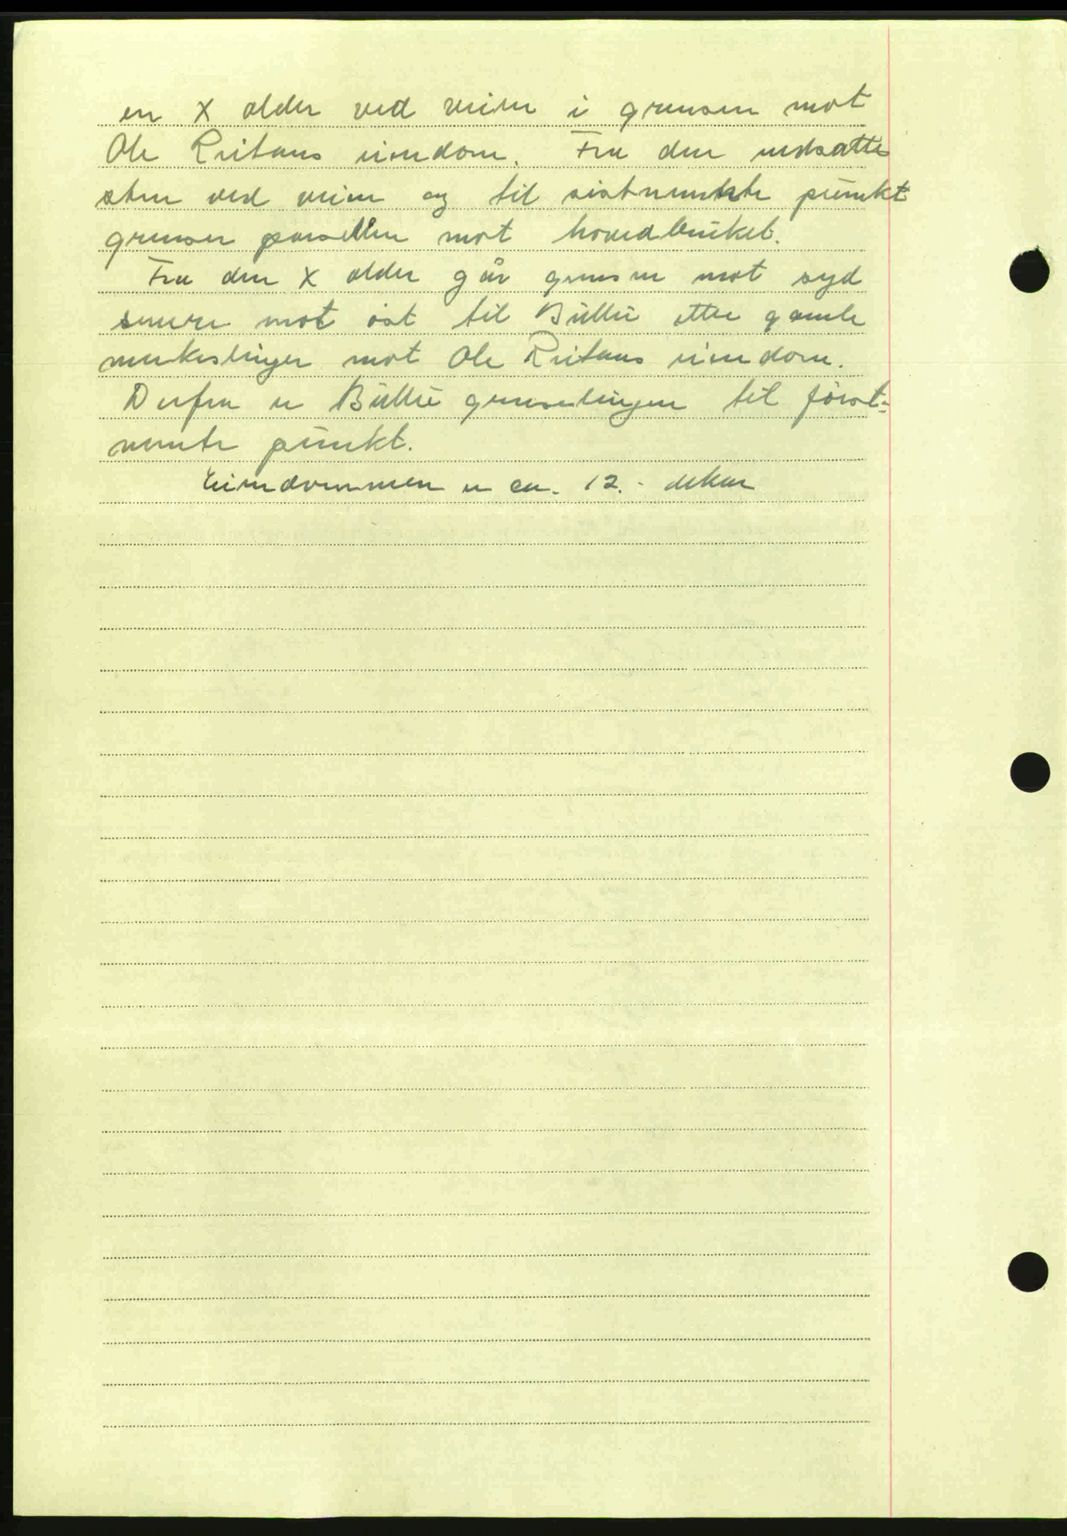 en X older ved veien i grensen mot
Ole Reitans eiendom. Fra den nedsatte
sten ved veien og til sistnevnte punkt
grenser parsellen mot hovedbruket.
Fra den X older går grensen mot syd
senere mot øst til efter gamle
merkeslinjer mot Ole Reitans eiendom.
Derfra er grenselinjen til først-
nevnte punkt.
Eiendommen er ca. 12.- dekar